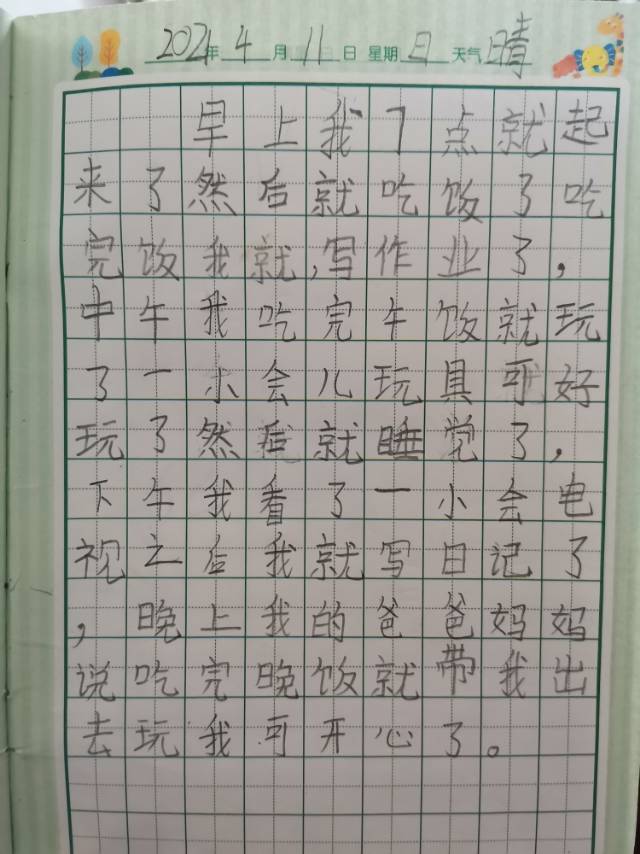 2021年4月11日 星期日 天气晴
早上我7点就起
来了然后就吃饭了吃
完饭我就,写作业了,
中午我吃完午饭就玩
了一小会儿玩具可好
玩了然后就睡觉了,
下午我看了一小会电
视之后我就写日记了
,晚上我的爸爸妈妈
说吃完晚饭就带我出
去玩我可开心了。